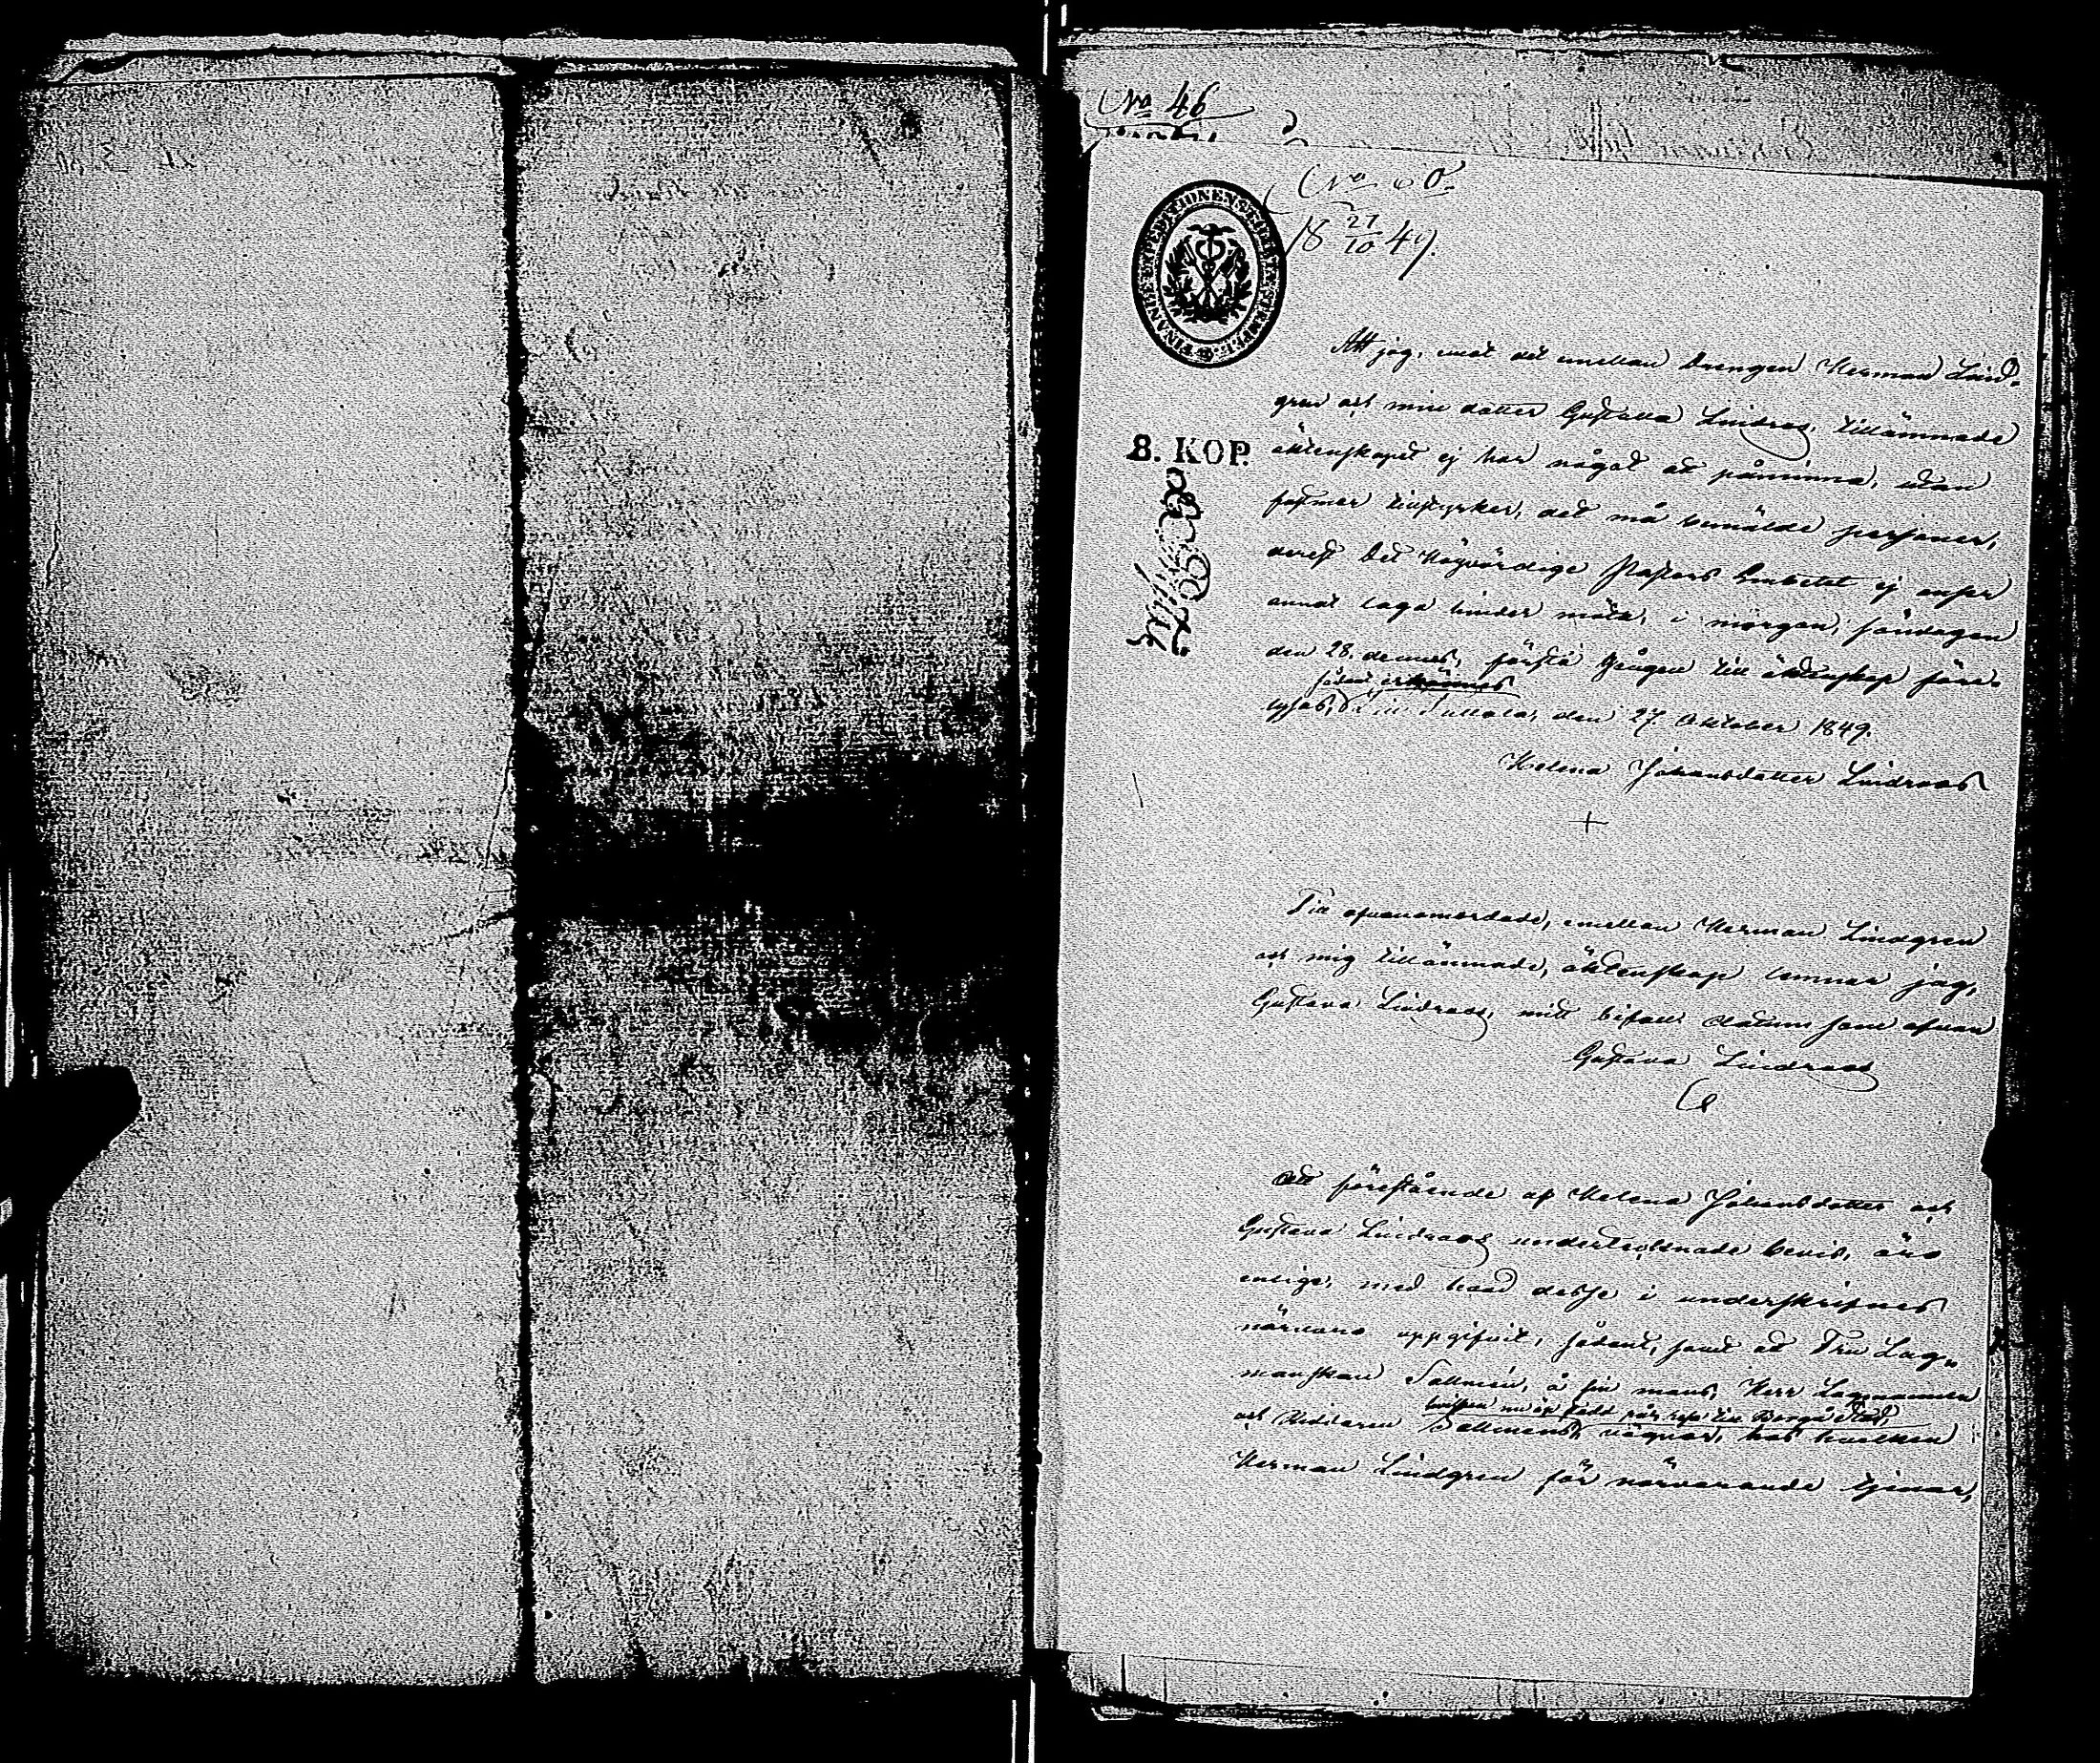 No 46
No 60.
18 27/10 49.
FINANCE EXPEDITIONENS
8. KOP.
Att jag, emot det emellan Drengen Herman Lind-
gren och min dotter Gustava Lindroos, tillämnade
äktenskapet ej har något att påminna, utan
fastmer tillstyrker, det må bemälde personer,
derest Det Högvördige Pastors Embetet ej anser
annat laga hinder möta, i morgon, söndagen
den 28. dennes, första gången till äktenskap före-
sådant erkännes
lysas, den 27 Oktober 1849.
Helena Johansdotter Lindroos
+
Till ofvanomordade, emellan Herman Lindgren
och mig tillämnade, äktenskap lemnar jag,
Gustava Lindroos, mitt bifall. Datum som ofvan
Gustava Lindroos
Att förestående af Helena Johansdotter och
Gustava Lindroos undertecknade bevis, äro
enlige, med hvad desse i underskrifnes
närvaro uppgifvit, sådant, samt att Fru Lag-
manskan å sin mans, Herr Lagmannen
hvilken nu är stadd på resa till Borgå stad,
och Riddaren vägnar, hos hvilken
Herman Lindgren för närvarande tjenar,